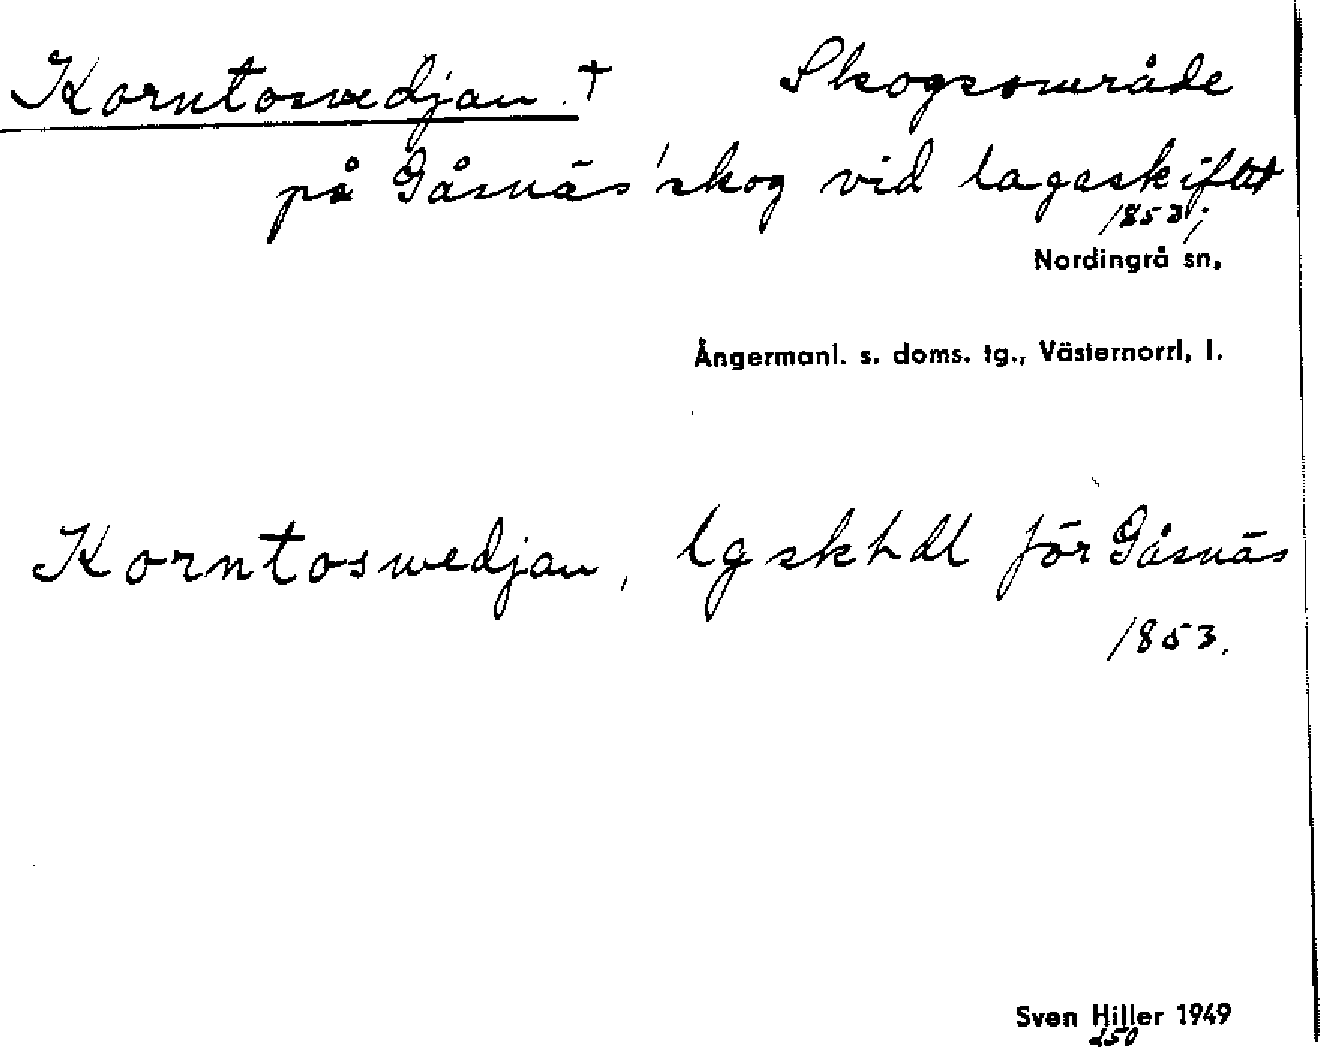 Korntoswedjan. † Skogsområde
på Gåsnäs' skog vid lagaskiftet
1853;
Nordingrå sn,
Ångermanl. s. doms. tg., Västernorrl. l.
Korntoswedjan, lgskhdl för Gåsnäs
1853.
Sven Hiller 1949
250